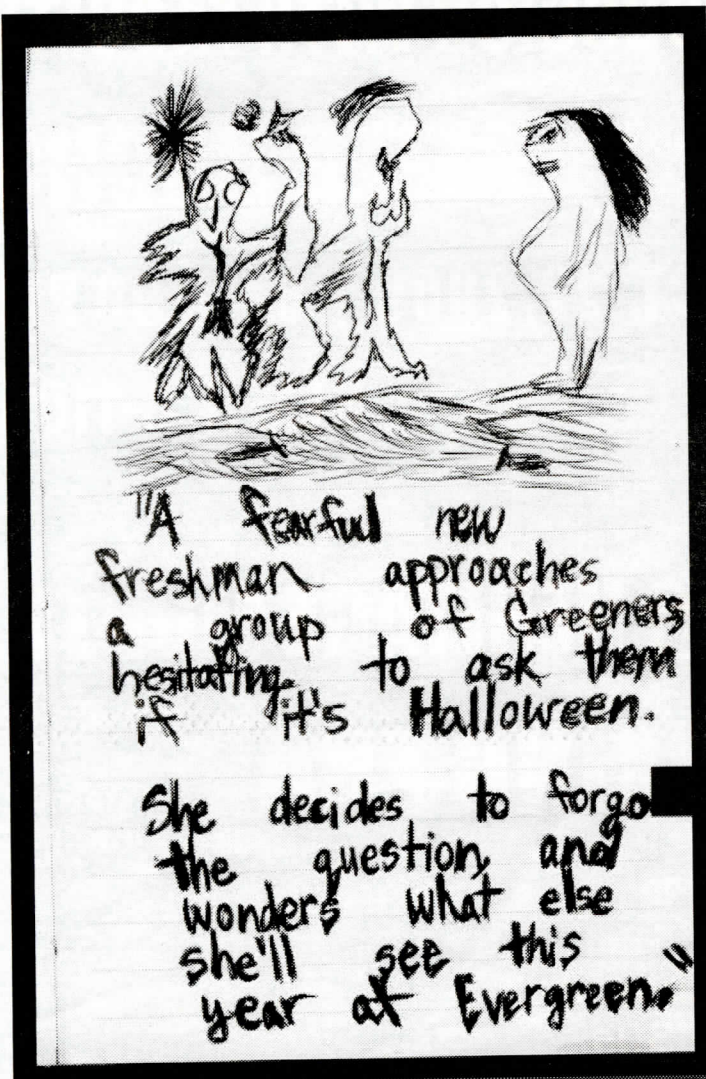 "A fearful new
freshman approaches
a group of Greeners
hesitating to ask them
if it's Halloween.
She decides to forgo
the question, and
wonders what else
she'll see this
year at Evergreen."